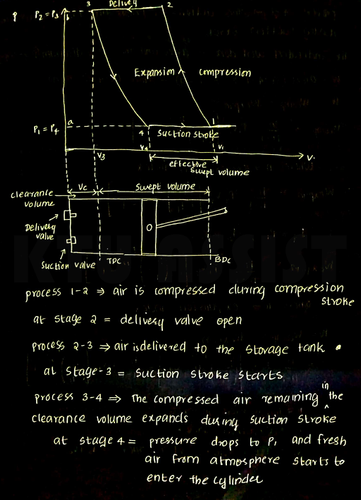 P
P₂ = P₃
b
3
Delivery
2
Expansion
compression
P₁ = P₄
a
1
suction stroke
V₃
V₄
V₁
V
effective
swept volume
clearance
volume
Vc
swept volume
Delivery
valve
O
suction valve
TDC
BDC
process 1-2 ⇒ air is compressed during compression
stroke
at stage 2 = delivery valve open
process 2-3 ⇒ air is delivered to the storage tank •
at stage-3 = suction stroke starts
process 3-4 ⇒ The compressed air remaining in the
clearance volume expands during suction stroke
at stage 4 = pressure drops to P₁ and fresh
air from atmosphere starts to
enter the cylinder